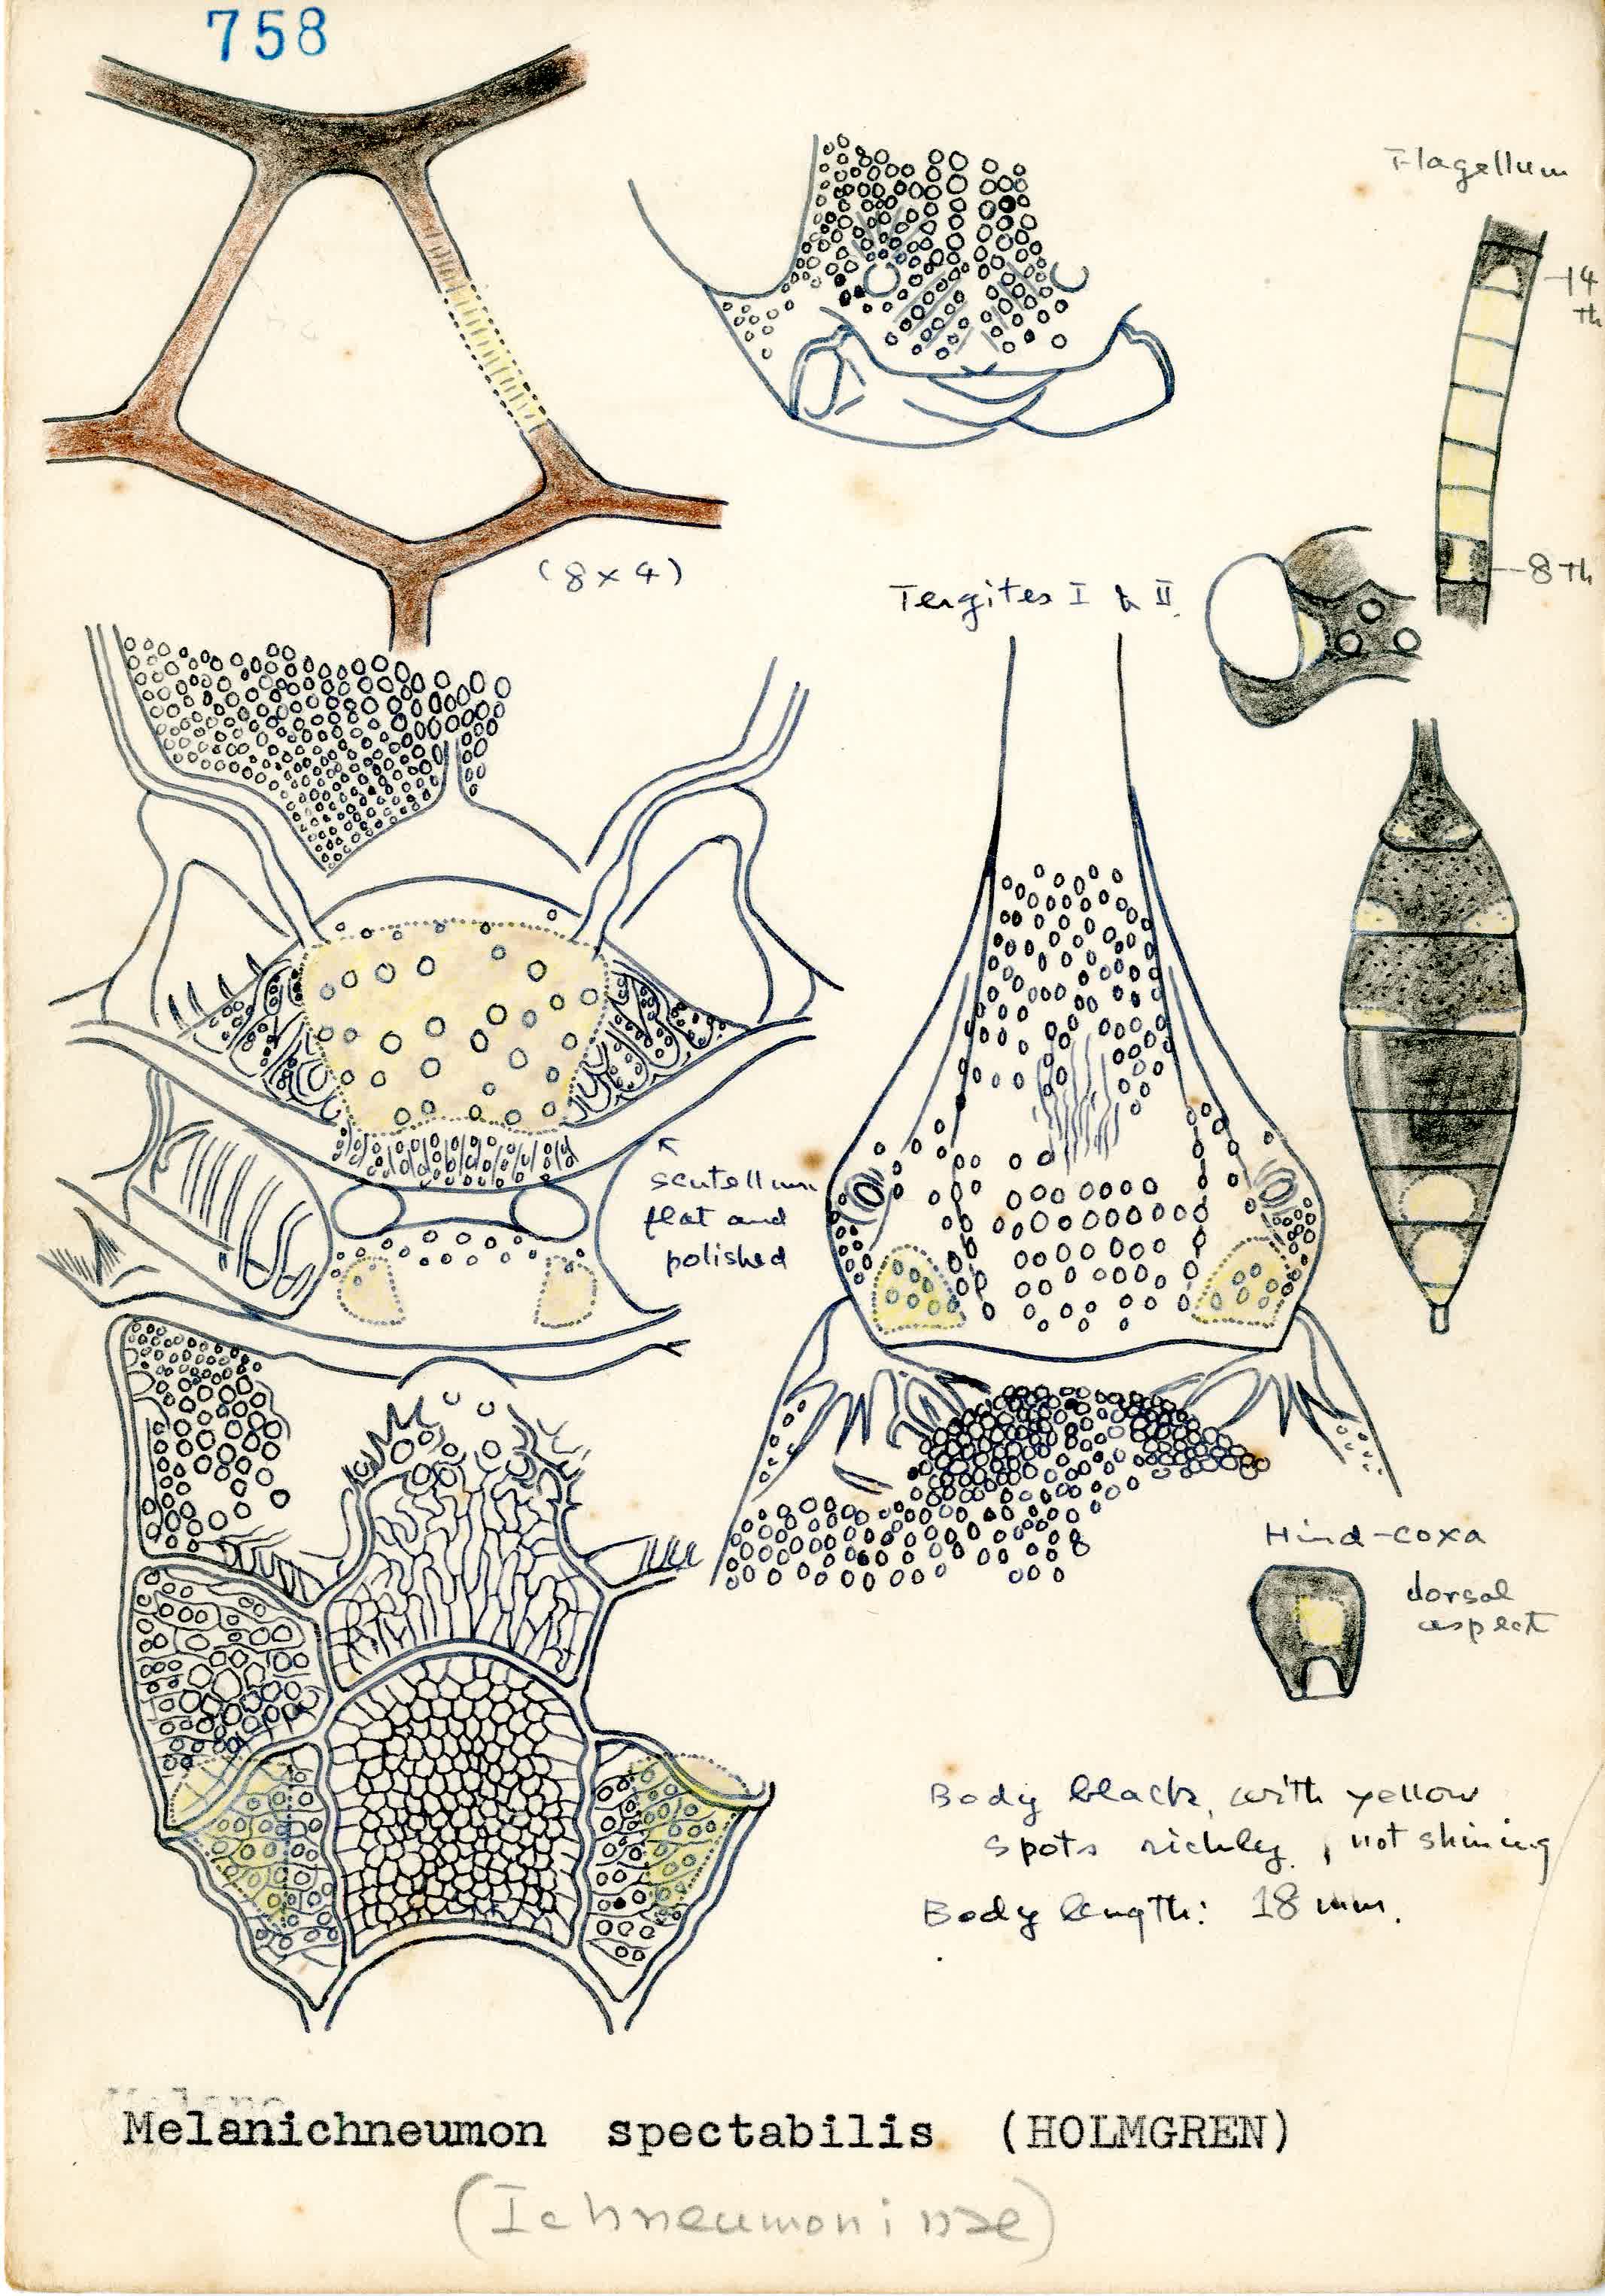 758
Flagellum
14
Th
8 Th
(8 x 4)
Tergites I & II.
scutellum
flat and
polished
Hind-coxa
dorsal
aspect
Body black, with yellow
spots richly, not shining
Body length: 18 mm.
Melanichneumon spectabilis (HOLMGREN)
(Ichneumoninae)